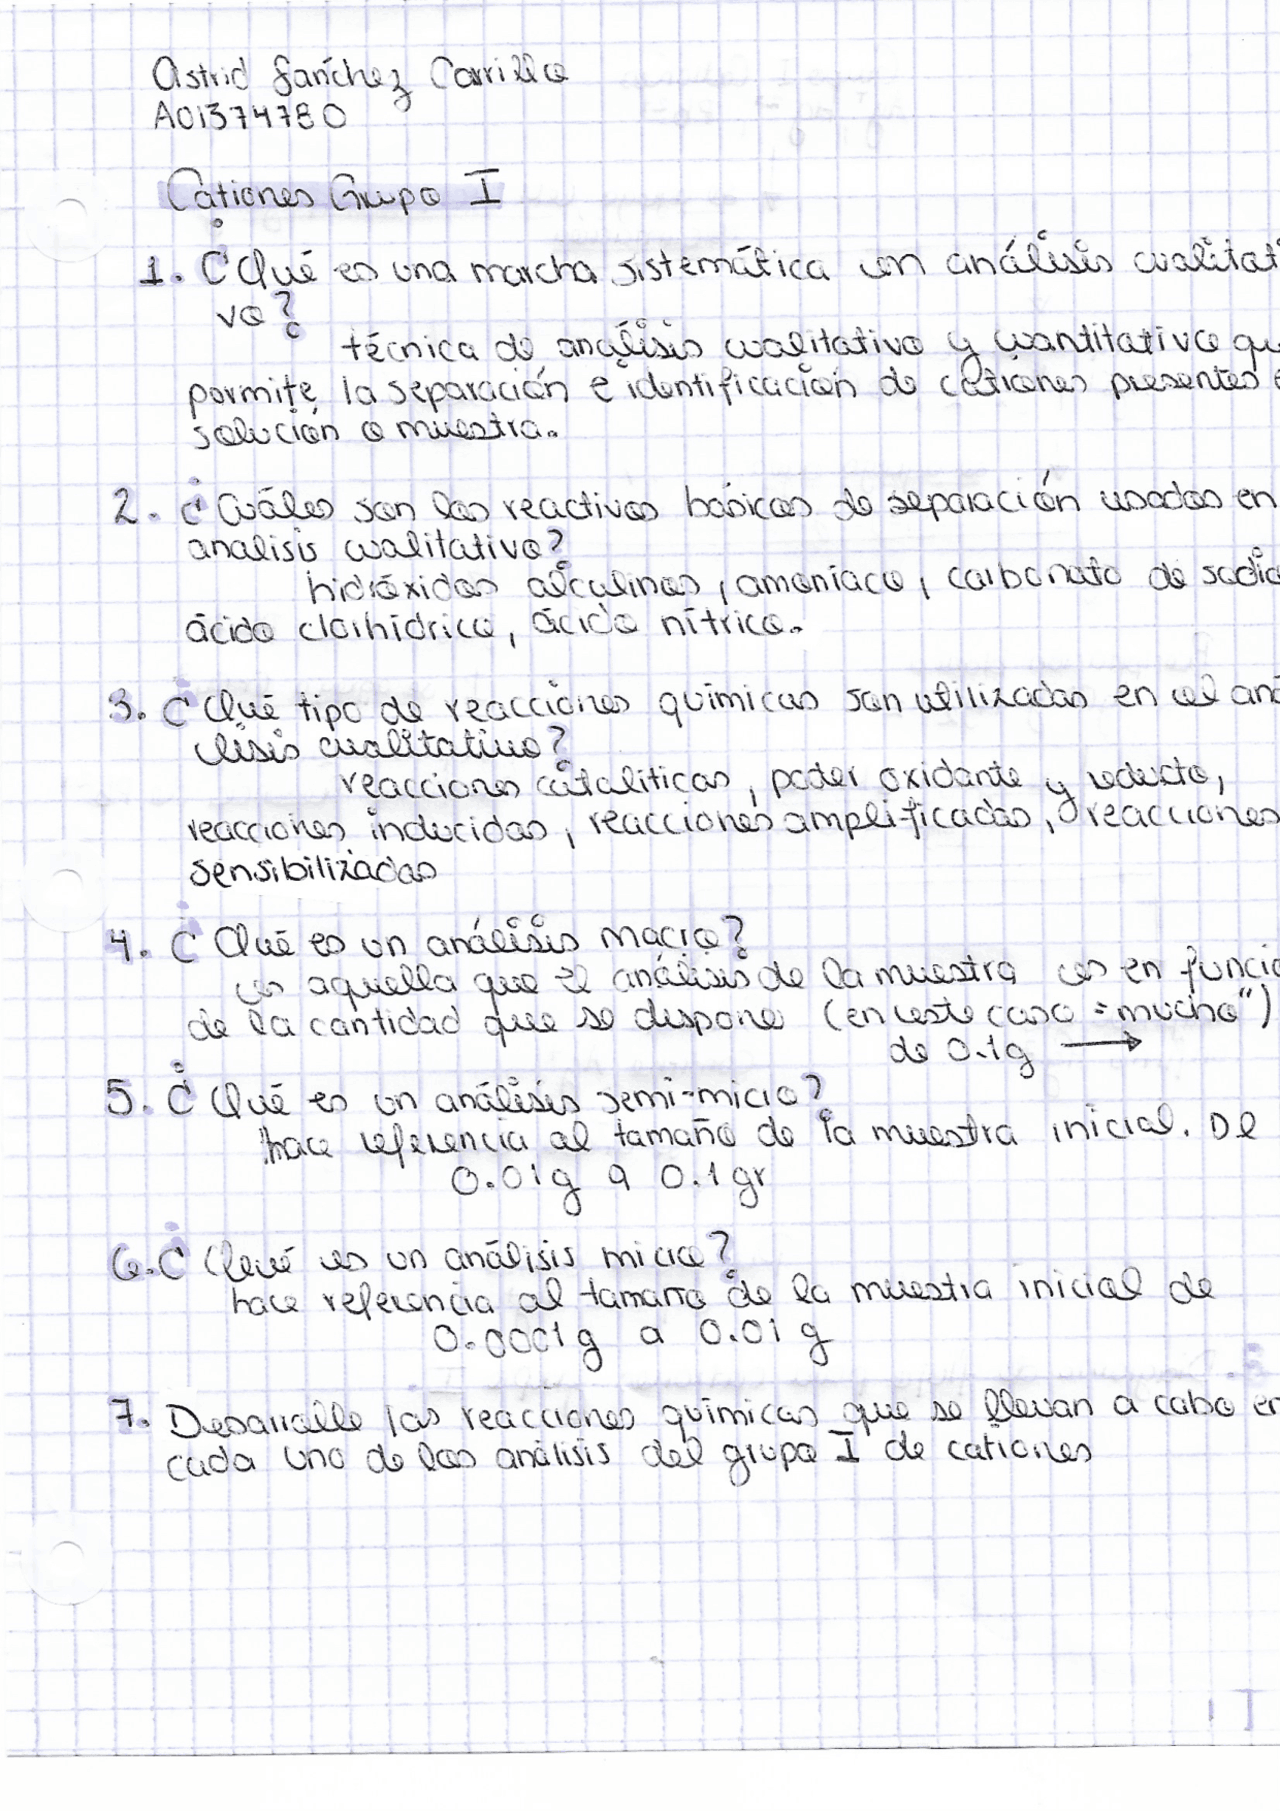 Astrid Sánchez Carrillo
A01374780
Cationes Grupo I
1. ¿Qué es una marcha sistemática en análisis cualitati
vo?
técnica de análisis cualitativo y cuantitativo qu
permite la separación e identificación de cationes presentes e
solución o muestra.
2. ¿Cuáles son los reactivos básicos de separación usados en
analisis cualitativo?
hidróxidos alcalinos, amoníaco, carbonato de sodio
ácido clorhídrico, ácido nítrico.
3. ¿Qué tipo de reacciones químicas son utilizadas en el aná
lisis cualitativo?
reacciones catalíticas, poder oxidante y reducto,
reacciones inducidas, reacciones amplificadas, reacciones
sensibilizadas
4. ¿Qué es un análisis macro?
es aquella que el análisis de la muestra es en funció
de la cantidad que se dispone (en este caso "mucho")
de 0.1g →
5. ¿Qué es un análisis semi-micro?
hace referencia al tamaño de la muestra inicial. De
0.01g a 0.1gr
6. ¿Qué es un análisis micro?
hace referencia al tamaño de la muestra inicial de
0.0001g a 0.01g
7. Desarrolle las reacciones químicas que se llevan a cabo en
cada uno de los análisis del grupo I de cationes